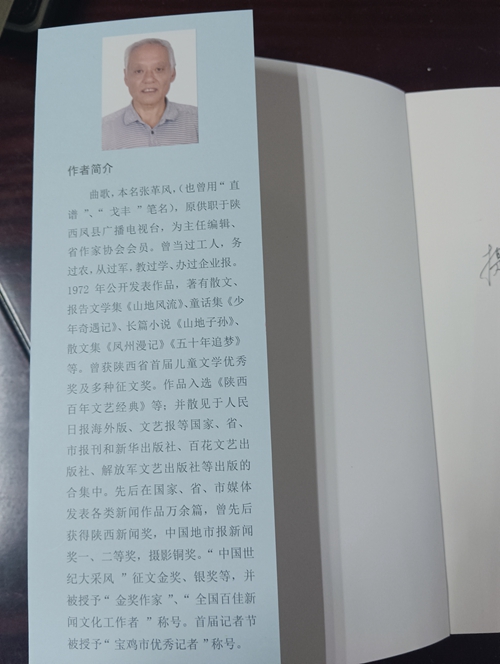 作者简介
曲歌，本名张革风，（也曾用“直
谱”、“戈丰”笔名），原供职于陕
西凤县广播电视台，为主任编辑、
省作家协会会员。曾当过工人，务
过农，从过军，教过学、办过企业报。
1972 年公开发表作品，著有散文、
报告文学集《山地风流》、童话集《少
年奇遇记》、长篇小说《山地子孙》、
散文集《凤州漫记》《五十年追梦》
等。曾获陕西省首届儿童文学优秀
奖及多种征文奖。作品入选《陕西
百年文艺经典》等；并散见于人民
日报海外版、文艺报等国家、省、
市报刊和新华出版社、百花文艺出
版社、解放军文艺出版社等出版的
合集中。先后在国家、省、市媒体
发表各类新闻作品万余篇，曾先后
获得陕西新闻奖，中国地市报新闻
奖一、二等奖，摄影铜奖。“中国世
纪大采风”征文金奖、银奖等，并
被授予“金奖作家”、“全国百佳新
闻文化工作者”称号。首届记者节
被授予“宝鸡市优秀记者”称号。